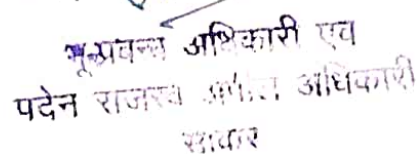 भू-प्रबन्ध अधिकारी एवं
पदेन राजस्व अपील अधिकारी